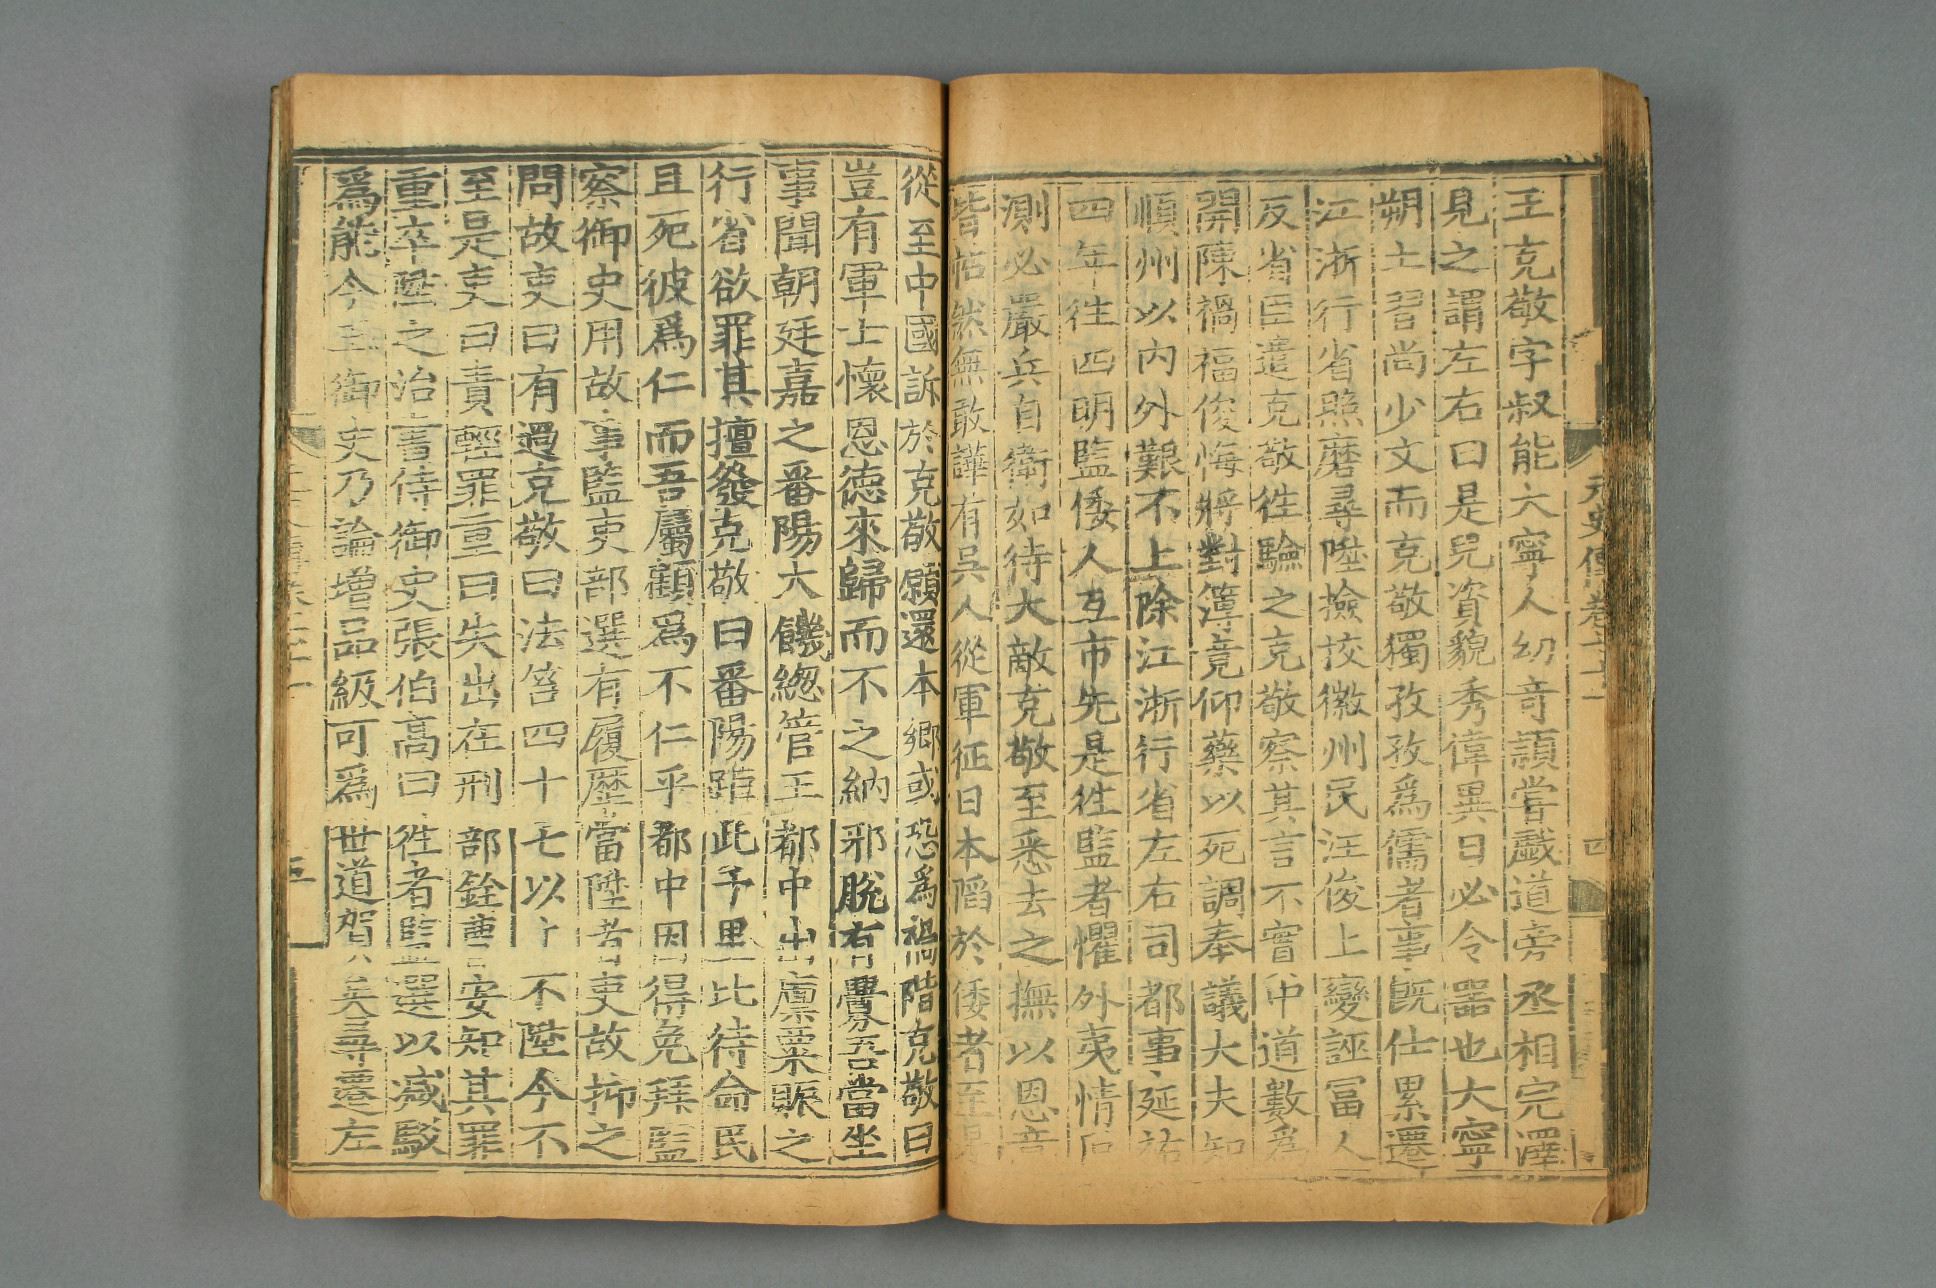 元史傳卷七十一
四
王克敬字叔能大寧人幼竒頴嘗戲道旁丞相完澤
見之謂左右曰是兒資貌秀偉異日必令器也大寧
朔土習尚少文而克敬獨孜孜爲儒者事旣仕累遷
江浙行省照磨尋陞撿挍徽州民汪俊上變誣冨人
反省臣遣克敬徃驗之克敬察其言不實中道數爲
開陳禍福俊悔將對簿竟仰藥以死調奉議大夫知
順州以内外艱不上除江浙行省左右司都事延祐
四年徃四明監倭人互市先是徃監者懼外夷情叵
測必嚴兵自衛如待大敵克敬至悉去之撫以恩意
皆帖然無敢譁有吳人從軍征日本䧟於倭者至是
從至中國訴於克敬願還本鄉或恐爲禍階克敬曰
豈有軍士懷恩德來歸而不之納邪脫有釁吾當坐
事聞朝廷嘉之番陽大饑緫管王都中出廪粟賑之
行省欲罪其擅發克敬曰番陽距此千里比待命民
且死彼爲仁而吾屬顧爲不仁乎都中因得免拜監
察御史用故事監吏部選有履歷當陞者吏故抑之
問故吏曰有過克敬曰法笞四十七以上不陞今不
至是吏曰責輕罪重曰失出在刑部銓曹安知其罪
重卒陞之治書侍御史張伯高曰徃者監選以减駁
爲能今王御史乃論增品級可爲世道賀矣尋遷左
五